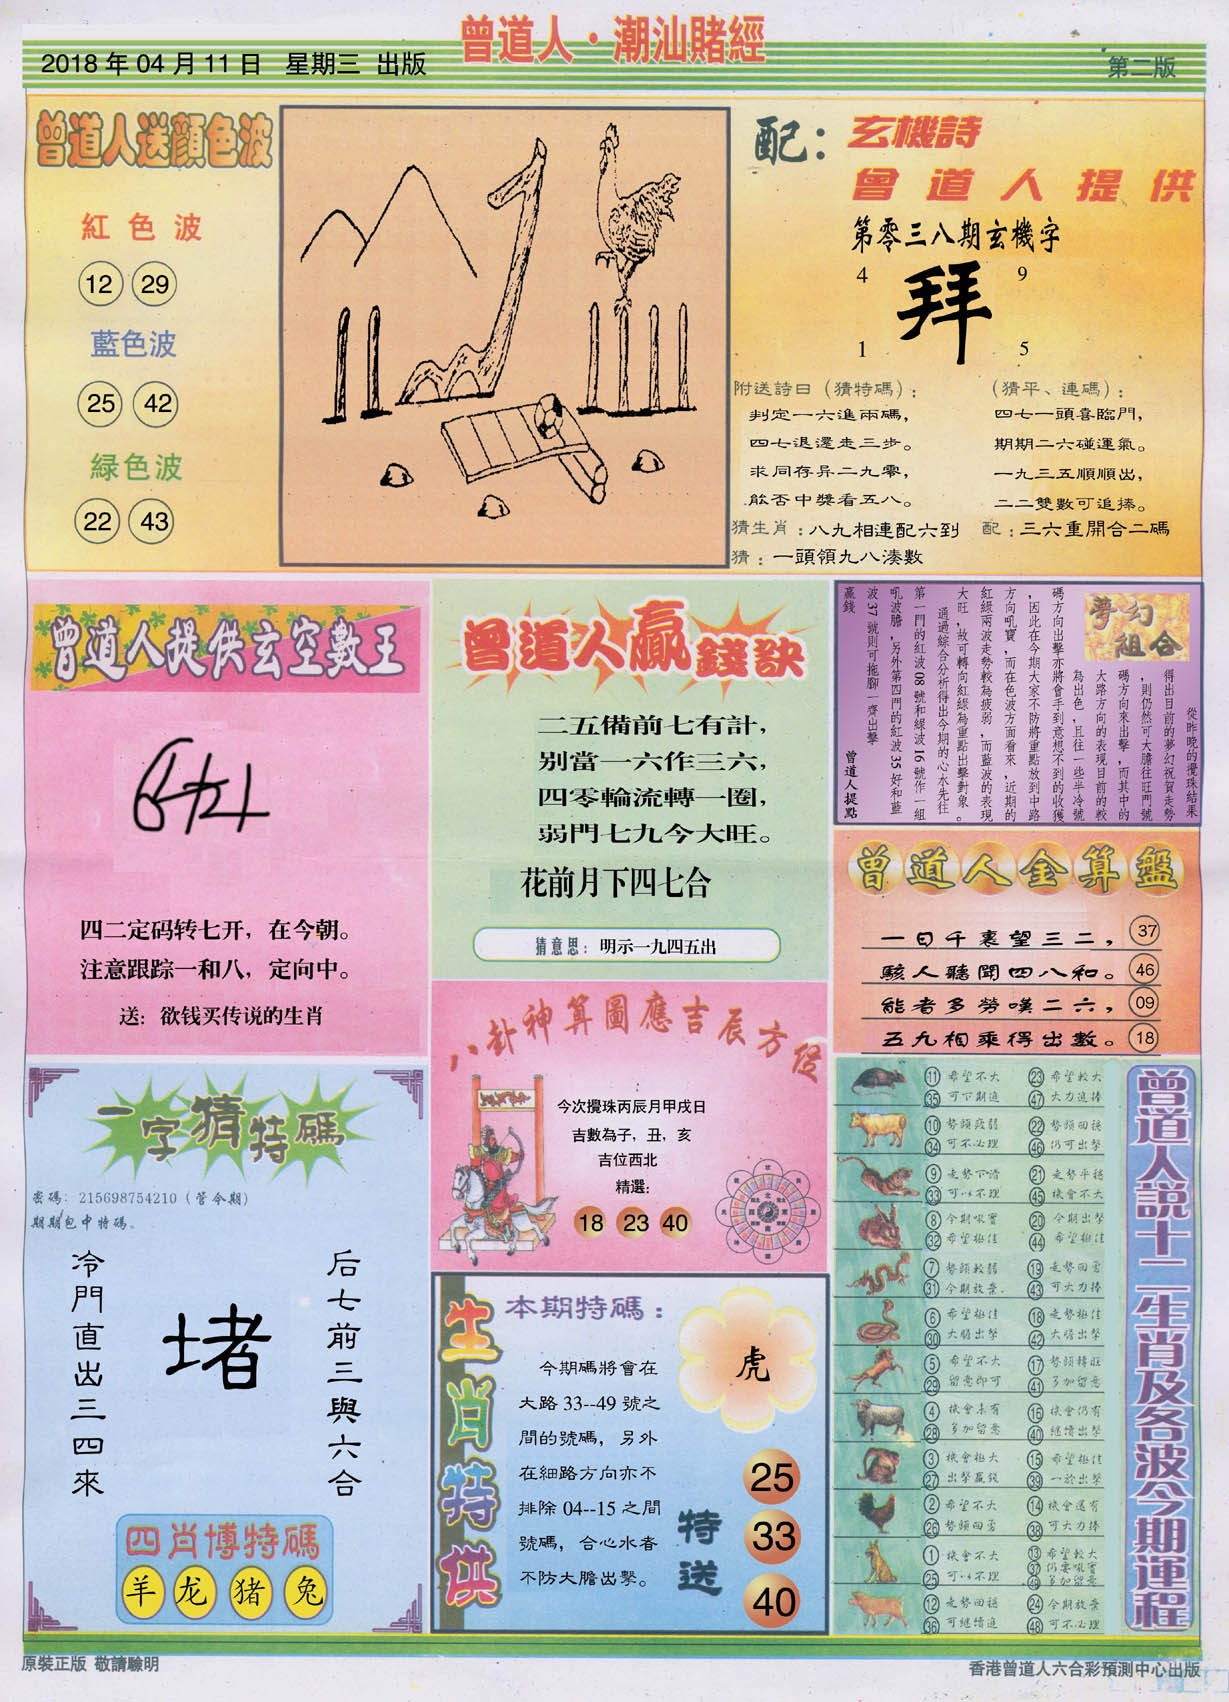 曾道人·潮汕賭經
2018 年 04 月 11 日 星期三 出版
第二版
曾道人送顏色波
紅色波
12 29
藍色波
25 42
緑色波
22 43
配：玄機詩
曾道人提供
第零三八期玄機字
4 9
拜
1 5
附送詩曰（猜特碼）：
判定一六進兩碼，
四七退還走三步。
求同存异二九零，
能否中獎看五八。
（猜平、連碼）：
四七一頭喜臨門，
期期二六碰運氣。
一九三五順順出，
二二雙數可追捧。
猜生肖：八九相連配六到
配：三六重開合二碼
猜：一頭領九八湊數
曾道人提供玄空數王
四二定码转七开，在今朝。
注意跟踪一和八，定向中。
送：欲钱买传说的生肖
曾道人贏錢訣
二五備前七有計，
别當一六作三六，
四零輪流轉一圈，
弱門七九今大旺。
花前月下四七合
猜意思：明示一九四五出
夢幻組合
從昨晚的攪珠結果
得出目前的夢幻祝賀走勢
，則仍然可大膽往旺門號
碼方向來出擊，而其中的
大路方向的表現目前的較
為出色，且往一些半冷號
碼方向出擊亦將會手到意想不到的收獲
，因此在今期大家不防將重點放到中路
方向吼寶，而在色波方面看來，近期的
紅綠兩波走勢較為疲弱，而藍波的表現
大旺，故可轉向紅綠為重點出擊對象。
通過綜合分析得出今期的心水先往
第一門的紅波 08 號和綠波 16 號作一組
吼波膽，另外第四門的紅波 35 好和藍
波 37 號則可拖腳一齊出擊
贏錢
曾道人提點
曾道人金算盤
一日千裏望三二， 37
駭人聽聞四八和。 46
能者多勞嘆二六， 09
五九相乘得出數。 18
八卦神算圖應吉辰方位
今次攪珠丙辰月甲戌日
吉數為子，丑，亥
吉位西北
精選：
18 23 40
一字猜特碼
密碼：215698754210（管今期）
期期包中特碼。
冷門直出三四來
堵
后七前三與六合
四肖博特碼
羊 龙 猪 兔
生肖特供
本期特碼：
今期碼將會在
大路 33--49 號之
間的號碼，另外
在細路方向亦不
排除 04--15 之間
號碼，合心水者
不防大膽出擊。
虎
特送
25
33
40
曾道人説十二生肖及各波今期運程
11 希望不大 23 希望較大
35 可下期追 47 大力追捧
10 勢頭疲弱 22 勢頭回穩
34 可不必理 46 仍可出擊
9 走勢下滑 21 走勢平穩
33 可以不理 45 機會不大
8 今期吼寶 20 今期出擊
32 希望極佳 44 希望極佳
7 勢頭較弱 19 走勢回勇
31 今期放棄 43 可大力捧
6 希望極佳 18 走勢極佳
30 大膽出擊 42 大膽出擊
5 希望不大 17 勢頭轉旺
29 留意即可 41 多加留意
4 機會未有 16 機會仍有
28 多加留意 40 繼續出擊
3 機會極大 15 希望極佳
27 出擊贏錢 39 一於出擊
2 希望不大 14 機會還有
26 勢頭回勇 38 可大力捧
1 機會不大 13 希望較大
25 可以不理 37 仍要吼實
49 多加留意
12 走勢回穩 24 今期放棄
36 可繼續追 48 可不必理
原裝正版 敬請驗明
香港曾道人六合彩預測中心出版